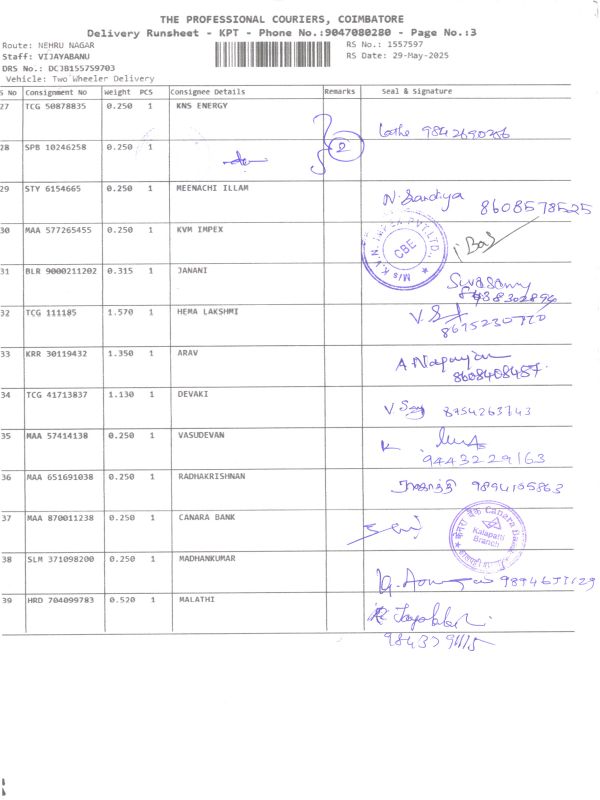 THE PROFESSIONAL COURIERS, COIMBATORE
Delivery Runsheet - KPT - Phone No.:9047080280 - Page No.:3
Route: NEHRU NAGAR RS No.: 1557597
Staff: VIJAYABANU RS Date: 29-May-2025
DRS No.: DCJB155759703
Vehicle: Two Wheeler Delivery
S No Consignment No Weight PCS Consignee Details Remarks Seal & Signature
27 TCG 50878835 0.250 1 KNS ENERGY
9842690766
28 SPB 10246258 0.250 1 2
29 STY 6154665 0.250 1 MEENACHI ILLAM N. Sandiya 8608578525
30 MAA 577265455 0.250 1 KVM IMPEX
M/s K.V.N. IMPEX PVT.LTD., CBE
31 BLR 9000211202 0.315 1 JANANI Sivasamy
32 TCG 111185 1.570 1 HEMA LAKSHMI
8675230770
33 KRR 30119432 1.350 1 ARAV A Nagarajan
8608408457
34 TCG 41713837 1.130 1 DEVAKI 8954263743
35 MAA 57414138 0.250 1 VASUDEVAN
9443229163
36 MAA 651691038 0.250 1 RADHAKRISHNAN 9894105863
37 MAA 870011238 0.250 1 CANARA BANK
केनरा बैंक Canara Bank Kalapatti Branch
38 SLM 371098200 0.250 1 MADHANKUMAR
39 HRD 704099783 0.520 1 MALATHI